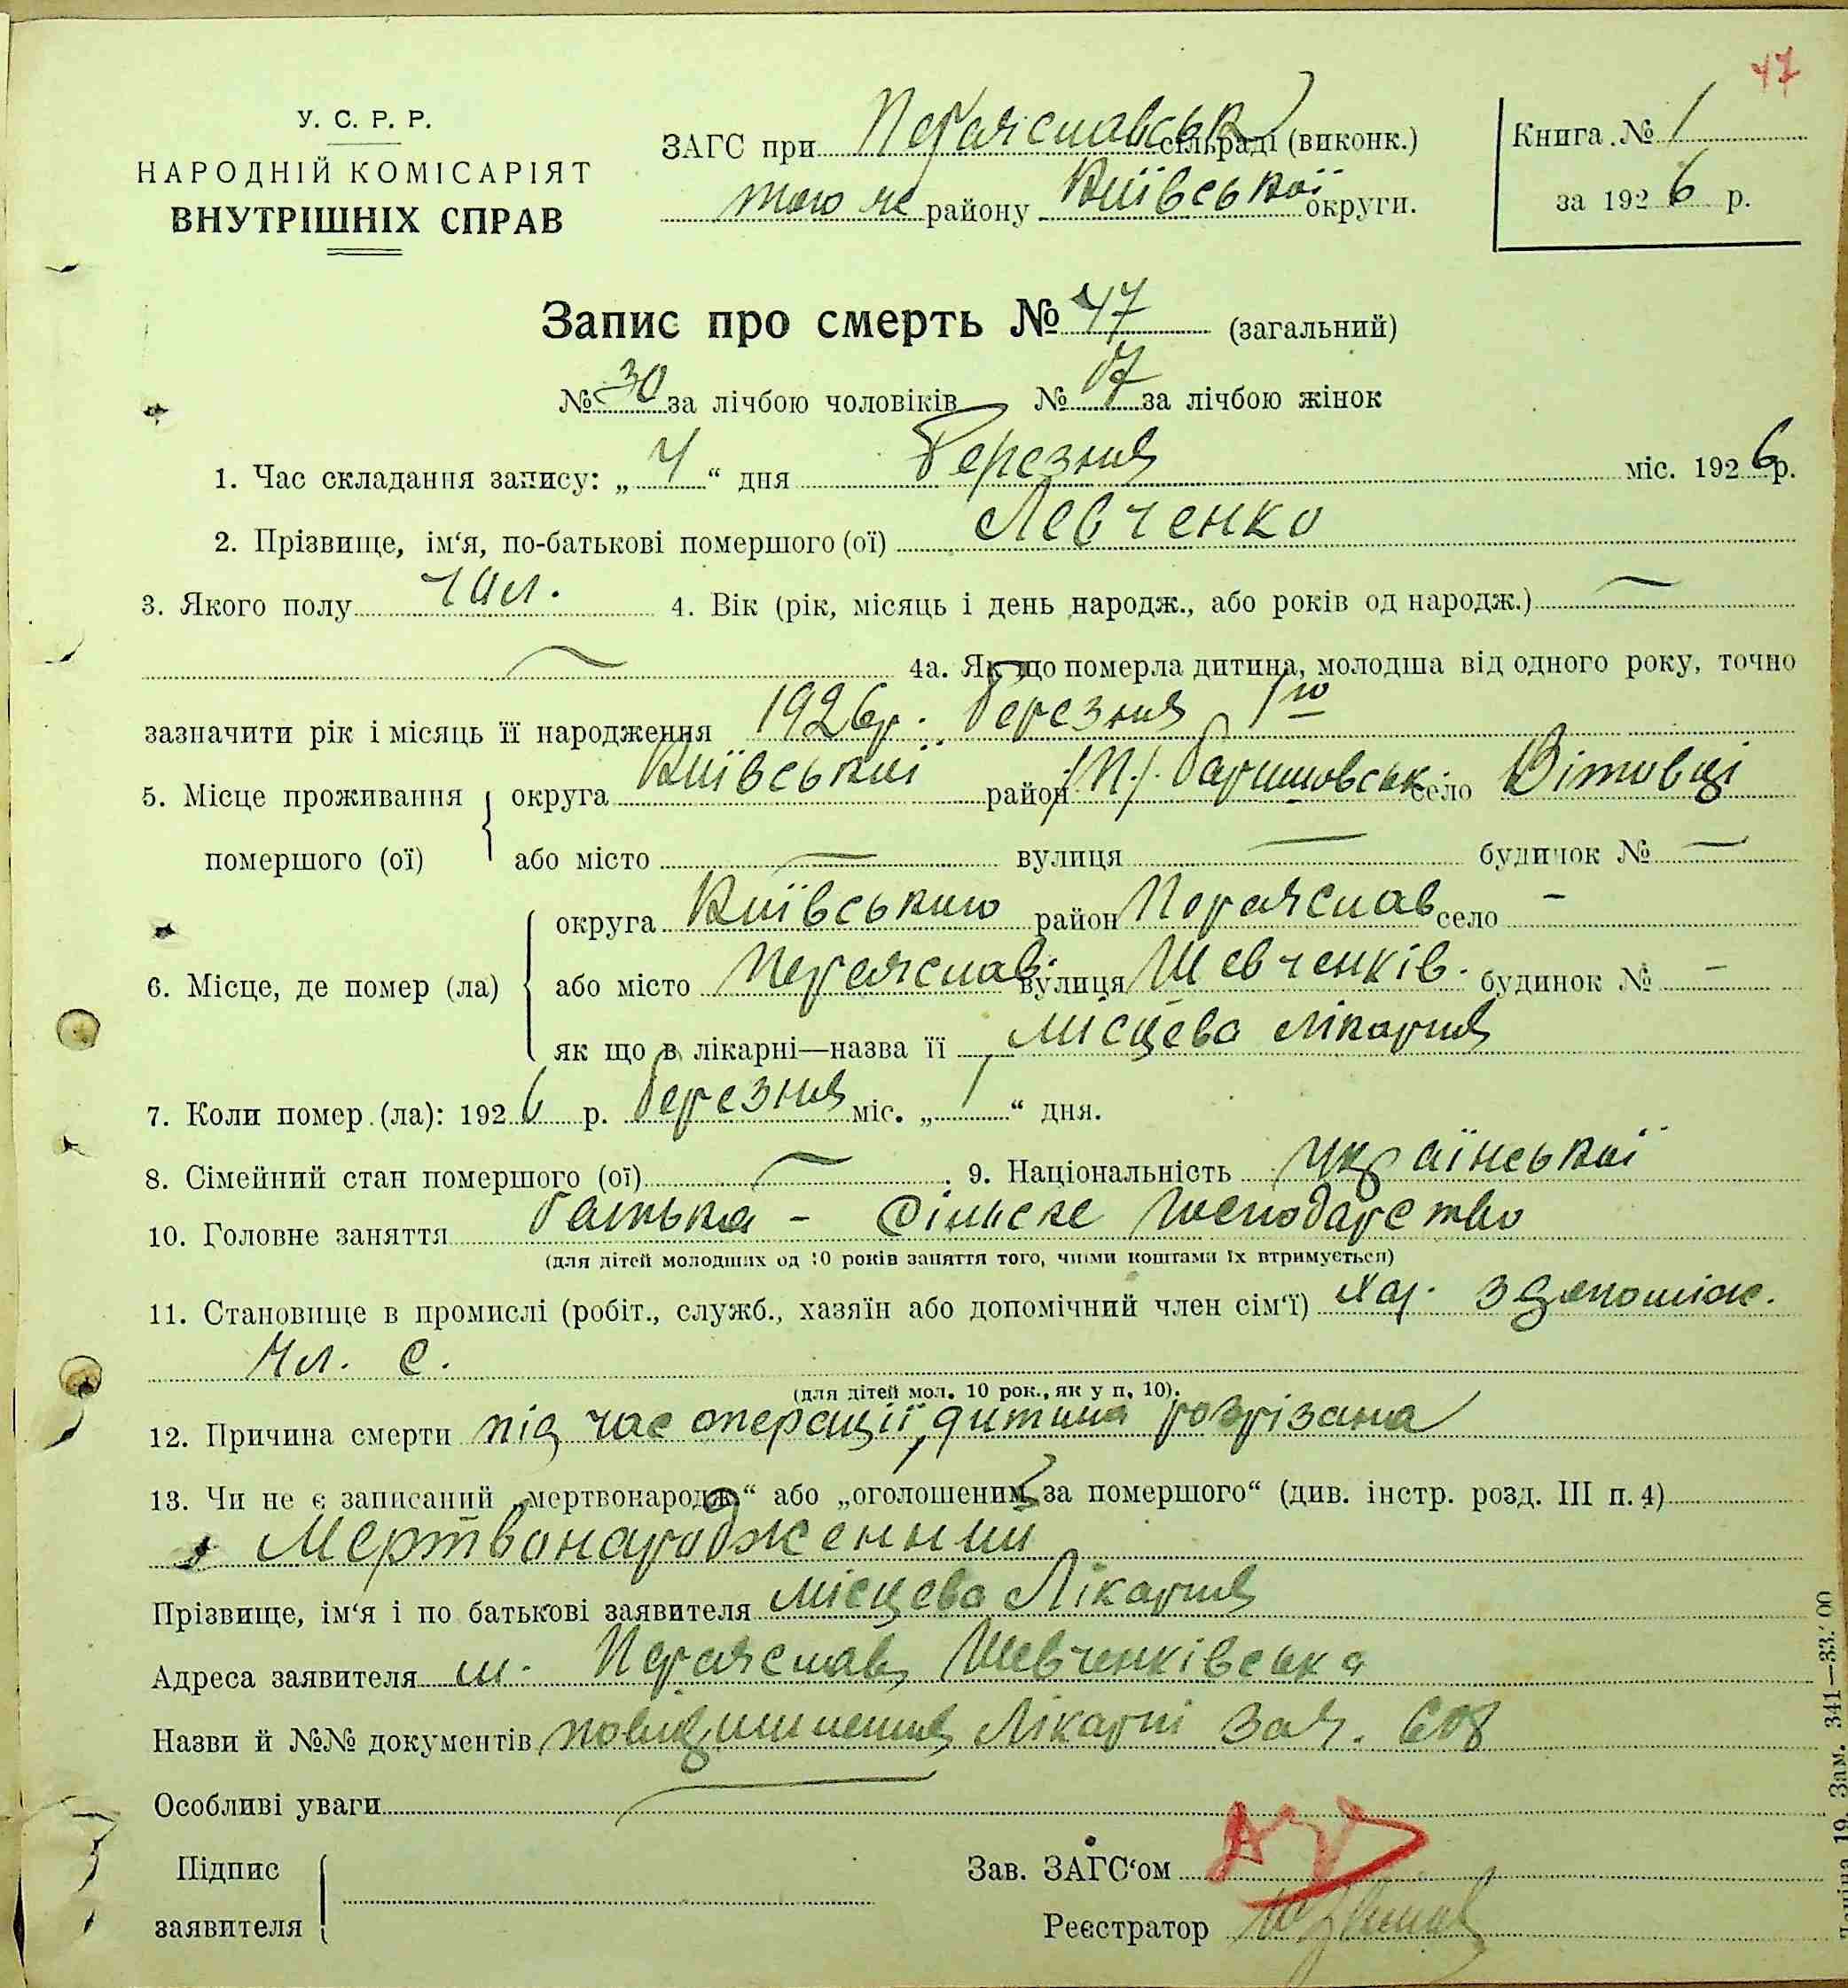 47
У. С. Р. Р.
НАРОДНІЙ КОМІСАРІЯТ
ВНУТРІШНІХ СПРАВ
ЗАГС при Переяславськ сільраді (виконк.)
того ж району Київської округи.
Книга № 1
за 1926 р.
Запис про смерть № 47 (загальний)
№ 30 за лічбою чоловіків № 17 за лічбою жінок
1. Час складання запису: „ 4 “ дня Березня міс. 1926 р.
2. Прізвище, ім‘я, по-батькові помершого (ої) Левченко
3. Якого полу чол. 4. Вік (рік, місяць і день народж., або років од народж.) —
— 4а. Як що померла дитина, молодша від одного року, точно
зазначити рік і місяць її народження 1926 р. березня 1го
5. Місце проживання округа Київської район Баришовськ. село Вітовці
помершого (ої) або місто — вулиця — будинок № —
округа Київського район Переяслав село —
6. Місце, де помер (ла) або місто Переяслав. вулиця Шевченків. будинок № —
як що в лікарні—назва її місцева лікарня
7. Коли помер (ла): 1926 р. березня міс. „ 1 “ дня.
8. Сімейний стан помершого (ої) — 9. Національність Української
10. Головне заняття батька - сільске господарство
(для дітей молодших од 10 років заняття того, чиїми коштами їх втримується)
11. Становище в промислі (робіт., служб., хазяїн або допомічний член сім‘ї) Хаз. з допоміж.
чл. с.
(для дітей мол. 10 рок., як у п. 10).
12. Причина смерти під час операції, дитина розрізана
13. Чи не є записаний „мертвонародж.“ або „оголошеним за помершого“ (див. інстр. розд. III п. 4)
Мертвонароджений
Прізвище, ім‘я і по батькові заявителя місцева Лікарня
Адреса заявителя м. Переяслав, Шевченківська
Назви й №№ документів повідомлення Лікарні за ч. 608
Особливі уваги —
Підпис
заявителя
Зав. ЗАГС‘ом
Реєстратор
19. Зам. 341—33.000